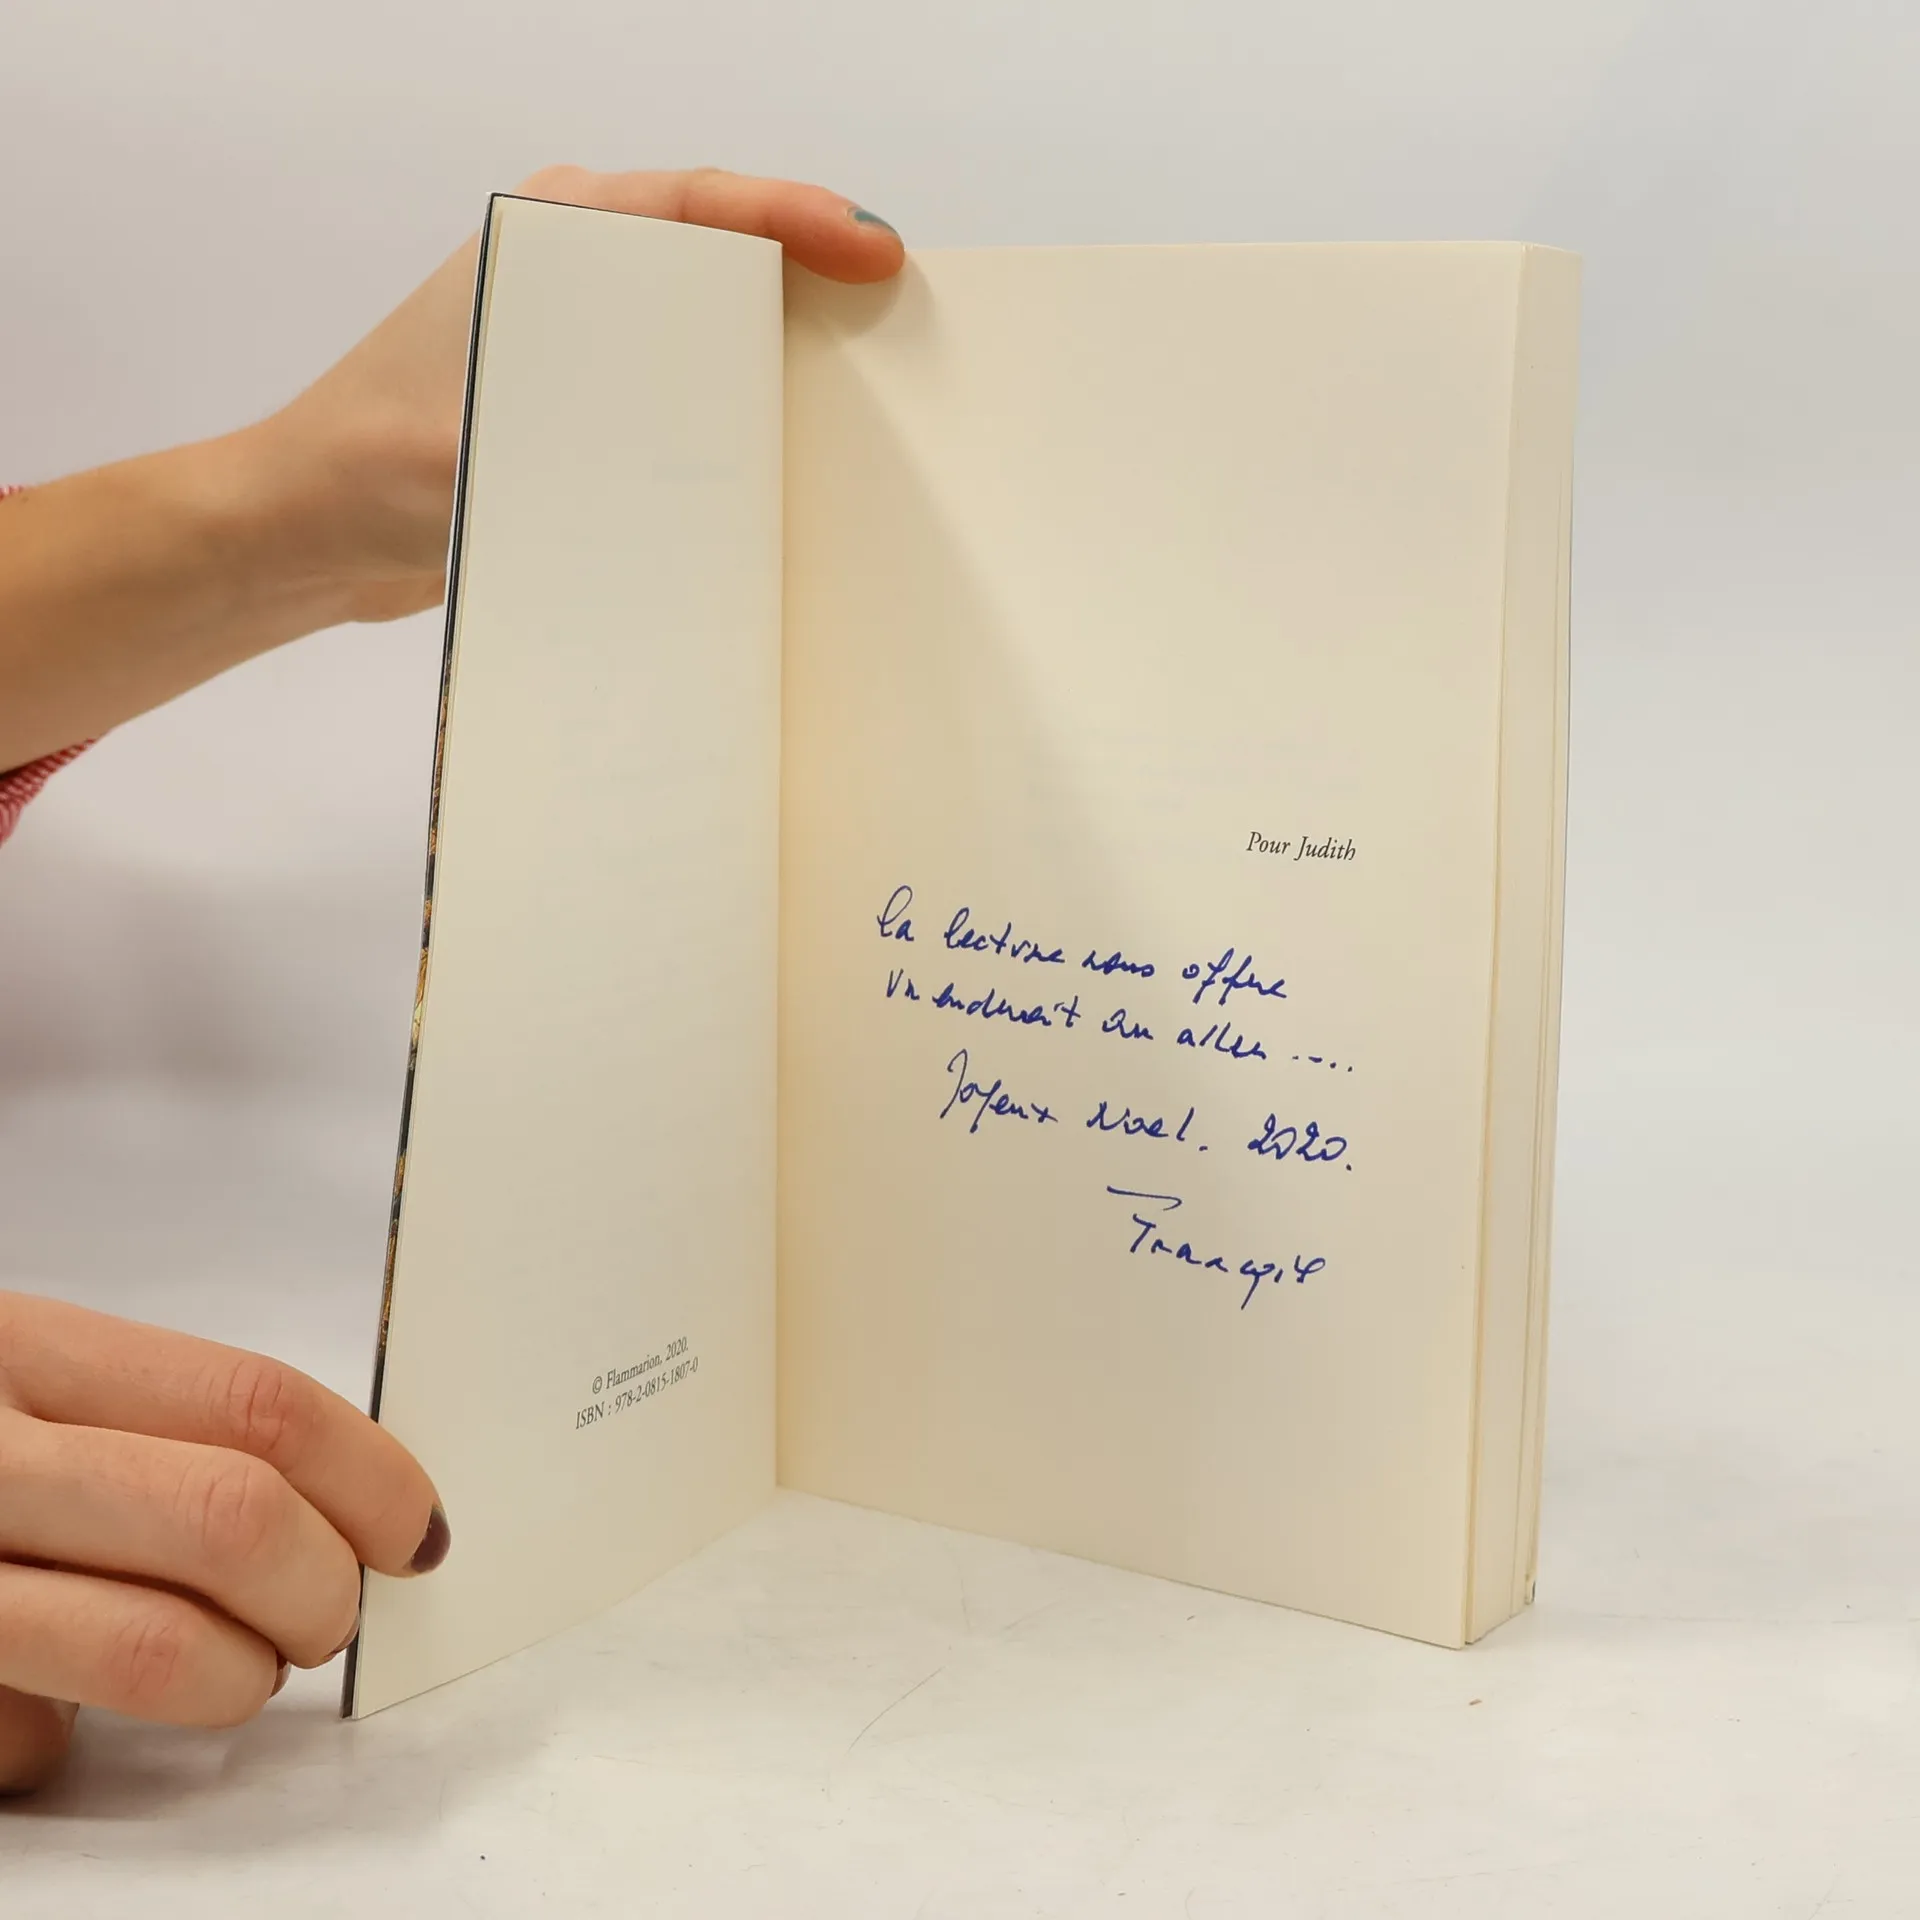 © Flammarion, 2020.
ISBN : 978-2-0815-1807-0
Pour Judith
La lecture nous offre
un endroit où aller ....
Joyeux Noel. 2020.